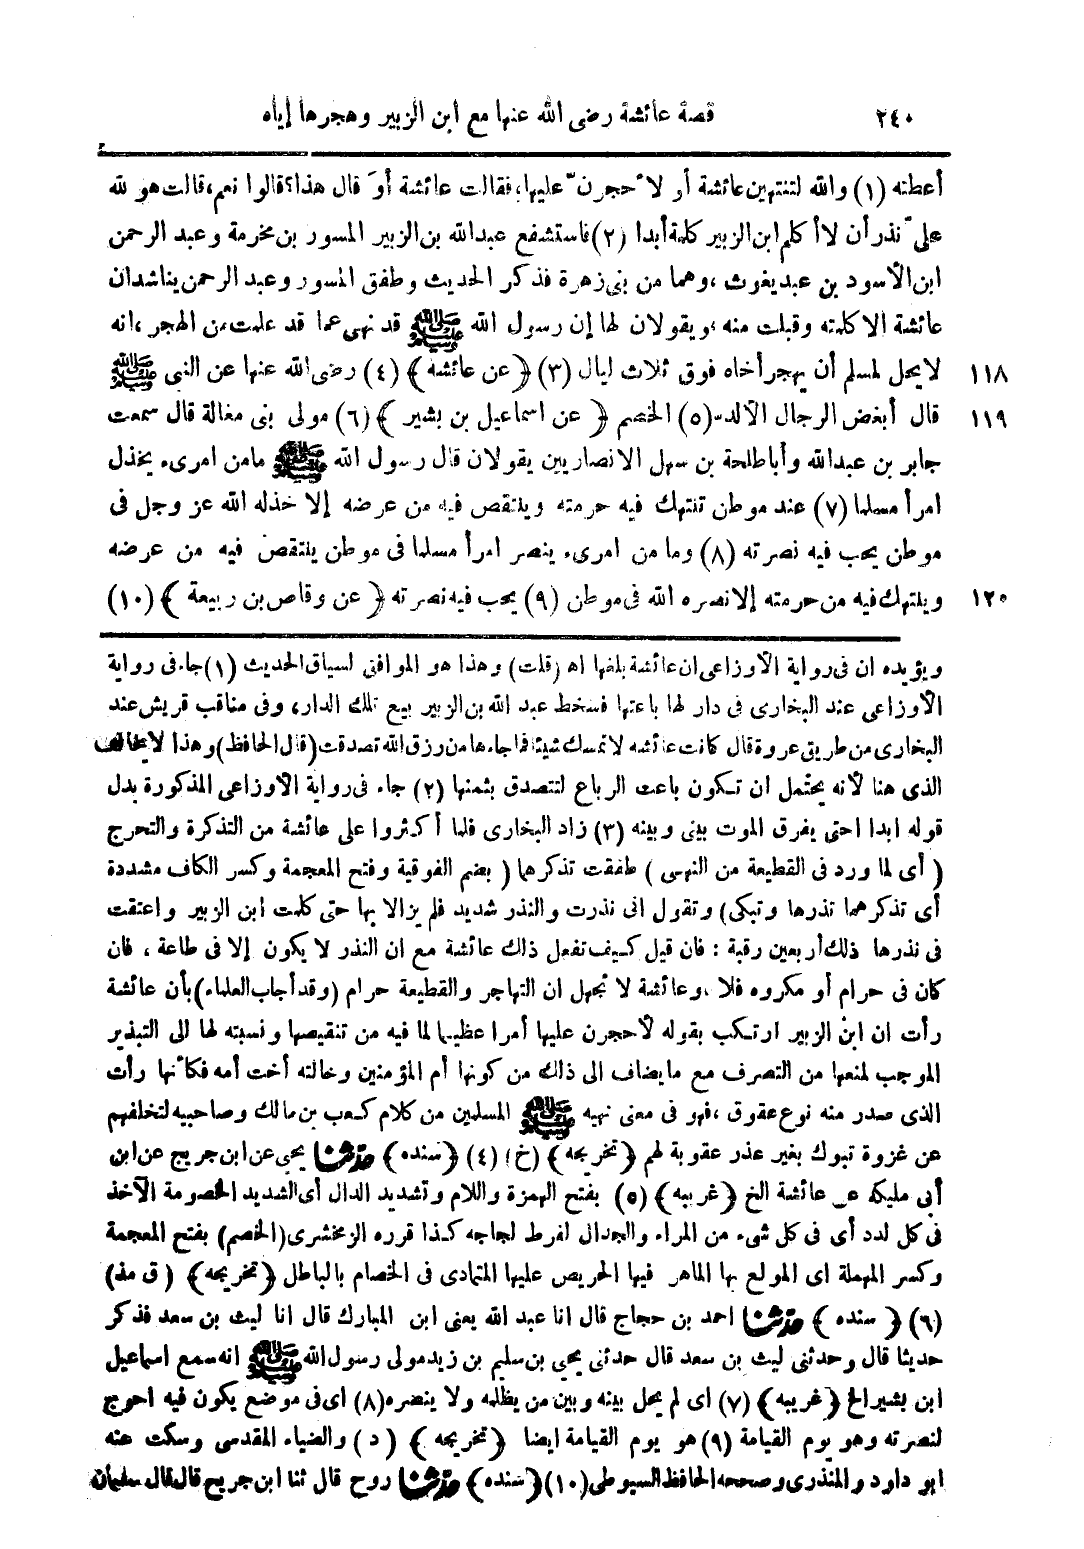 ٢٤٠ قصة عائشة رضى الله عنها مع ابن الزبير وهجرها إياه
أعطته (١) والله لتنتهين عائشة أو لأحجرن عليها، فقالت عائشة أوَ قال هذا؟ قالوا نعم، قالت هو لله
علىّ نذر أن لا أكلم ابن الزبير كلمة أبدا (٢) فاستشفع عبد الله بن الزبير المسور بن مخرمة وعبد الرحمن
ابن الأسود بن عبد يغوث، وهما من بنى زهرة فذكر الحديث وطفق المسور وعبد الرحمن يناشدان
عائشة الا كلمته وقبلت منه، ويقولان لها إن رسول الله ﷺ قد نهى عما قد علمت من الهجر، انه
١١٨ لا يحل لمسلم أن يهجر أخاه فوق ثلاث ليال (٣) ﴿عن عائشه﴾ (٤) رضى الله عنها عن النبى ﷺ
١١٩ قال أبغض الرجال الألد (٥) الخصم ﴿عن اسماعيل بن بشير﴾ (٦) مولى بنى مغالة قال سمعت
جابر بن عبد الله وأبا طلحة بن سهل الانصاريين يقولان قال رسول الله ﷺ مامن امرىء يخذل
امرأ مسلما (٧) عند موطن تنتهك فيه حرمته وينتقص فيه من عرضه إلا خذله الله عز وجل فى
موطن يحب فيه نصرته (٨) وما من امرىء ينصر امرأ مسلما فى موطن ينتقص فيه من عرضه
١٢٠ وينتهك فيه من حرمته إلا نصره الله فى موطن (٩) يحب فيه نصرته ﴿عن وقاص بن ربيعة﴾ (١٠)
ويؤيده ان فى رواية الأوزاعى ان عائشة بلغها اه (قلت) وهذا هو الموافق لسياق الحديث (١) جاء فى رواية
الأوزاعى عند البخارى فى دار لها باعتها فسخط عبد الله بن الزبير بيع تلك الدار، وفى مناقب قريش عند
البخارى من طريق عروة قال كانت عائشه لا تمسك شيئا فما جاءها من رزق الله تصدقت (قال الحافظ) وهذا لا يخالف
الذى هنا لأنه يحتمل ان تكون باعت الرباع لتتصدق بثمنها (٢) جاء فى رواية الأوزاعى المذكورة بدل
قوله ابدا احتى يفرق الموت بينى وبينه (٣) زاد البخارى فلما أكثروا على عائشة من التذكرة والتحرج
(أى لما ورد فى القطيعة من النهى) طفقت تذكرها (بضم الفوقية وفتح المعجمة وكسر الكاف مشددة
أى تذكرهما نذرها وتبكى) وتقول انى نذرت والنذر شديد فلم يزالا بها حتى كلمت ابن الزبير واعتقت
فى نذرها ذلك أربعين رقبة: فان قيل كيف تفعل ذلك عائشة مع ان النذر لا يكون إلا فى طاعة، فان
كان فى حرام أو مكروه فلا، وعائشة لا تجهل ان التهاجر والقطيعة حرام (وقد أجاب العلماء) بأن عائشة
رأت ان ابن الزبير ارتكب بقوله لأحجرن عليها أمرا عظيما لما فيه من تنقيصها ونسبته لها الى التبذير
الموجب لمنعها من التصرف مع ما يضاف الى ذلك من كونها أم المؤمنين وخالته أخت أمه فكأنها رأت
الذى صدر منه نوع عقوق، فهو فى معنى نهيه ﷺ المسلمين من كلام كعب بن مالك وصاحبيه لتخلفهم
عن غزوة تبوك بغير عذر عقوبة لهم ﴿تخريجه﴾ (خ) (٤) ﴿سنده﴾ حدثنا يحيى عن ابن جريج عن ابن
أبى مليكه عن عائشة الخ ﴿غريبه﴾ (٥) بفتح الهمزة واللام وتشديد الدال أى الشديد الخصومة الآخذ
فى كل لدد أى فى كل شىء من المراء والجدال لفرط لجاجه كذا قرره الزمخشرى (الخصم) بفتح المعجمة
وكسر المهملة اى المولع بها الماهر فيها الحريص عليها المتمادى فى الخصام بالباطل ﴿تخريجه﴾ (ق مذ)
(٦) ﴿سنده﴾ حدثنا احمد بن حجاج قال انا عبد الله يعنى ابن المبارك قال انا ليث بن سعد فذكر
حديثا قال وحدثنى ليث بن سعد قال حدثنى يحيى بن سليم بن زيد مولى رسول الله ﷺ انه سمع اسماعيل
ابن بشير الخ ﴿غريبه﴾ (٧) اى لم يحل بينه وبين من يظلمه ولا ينصره (٨) اى فى موضع يكون فيه احوج
لنصرته وهو يوم القيامة (٩) هو يوم القيامة ايضا ﴿تخريجه﴾ (د) والضياء المقدسى وسكت عنه
ابو داود والمنذرى وصححه الحافظ السيوطى (١٠) ﴿سنده﴾ حدثنا روح قال ثنا ابن جريج قال قال سليمان